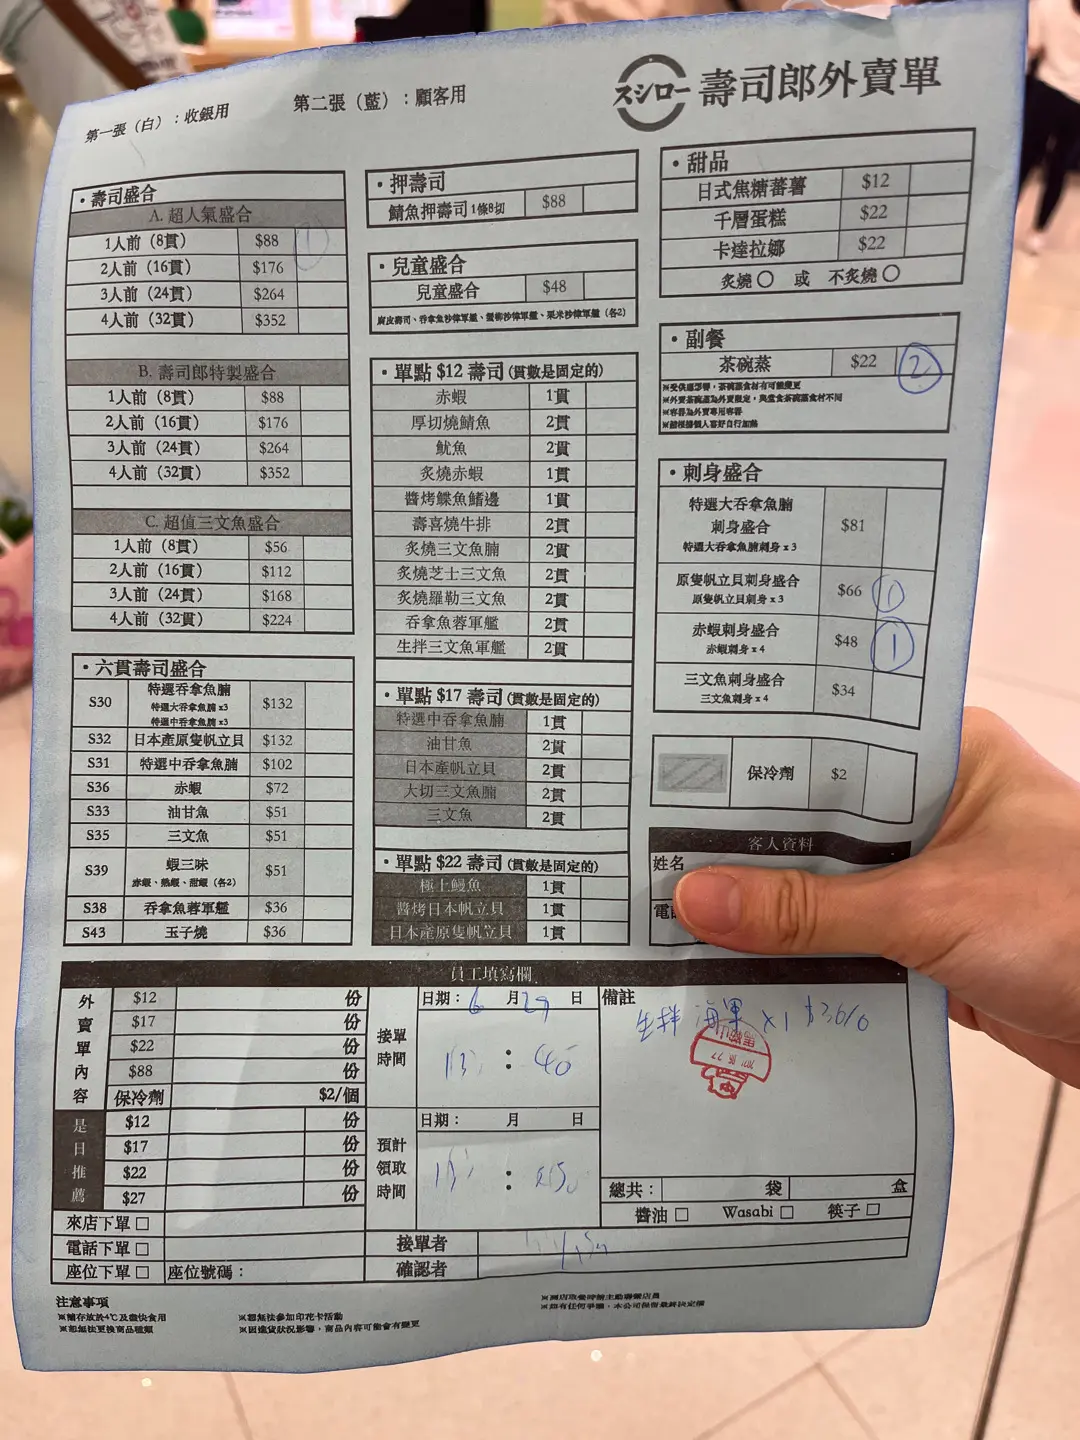 第一張（白）：收銀用
第二張（藍）：顧客用
スシロー 壽司郎外賣單
・壽司盛合
A. 超人氣盛合
1人前（8貫） $88 1
2人前（16貫） $176
3人前（24貫） $264
4人前（32貫） $352
B. 壽司郎特製盛合
1人前（8貫） $88
2人前（16貫） $176
3人前（24貫） $264
4人前（32貫） $352
C. 超值三文魚盛合
1人前（8貫） $56
2人前（16貫） $112
3人前（24貫） $168
4人前（32貫） $224
・六貫壽司盛合
S30 特選吞拿魚腩 $132
特選大吞拿魚腩 x3
特選中吞拿魚腩 x3
S32 日本產原隻帆立貝 $132
S31 特選中吞拿魚腩 $102
S36 赤蝦 $72
S33 油甘魚 $51
S35 三文魚 $51
S39 蝦三昧 $51
赤蝦、熟蝦、甜蝦（各2）
S38 吞拿魚蓉軍艦 $36
S43 玉子燒 $36
・押壽司
鯖魚押壽司 1條8切 $88
・兒童盛合
兒童盛合 $48
腐皮壽司、吞拿魚沙律軍艦、蟹柳沙律軍艦、粟米沙律軍艦（各2）
・單點 $12 壽司 (貫數是固定的)
赤蝦 1貫
厚切燒鯖魚 2貫
魷魚 2貫
炙燒赤蝦 1貫
醬烤鰈魚鰭邊 1貫
壽喜燒牛排 2貫
炙燒三文魚腩 2貫
炙燒芝士三文魚 2貫
炙燒羅勒三文魚 2貫
吞拿魚蓉軍艦 2貫
生拌三文魚軍艦 2貫
・單點 $17 壽司 (貫數是固定的)
特選中吞拿魚腩 1貫
油甘魚 2貫
日本產帆立貝 2貫
大切三文魚腩 2貫
三文魚 2貫
・單點 $22 壽司 (貫數是固定的)
極上鰻魚 1貫
醬烤日本帆立貝 1貫
日本產原隻帆立貝 1貫
・甜品
日式焦糖蕃薯 $12
千層蛋糕 $22
卡達拉娜 $22
炙燒○ 或 不炙燒○
・副餐
茶碗蒸 $22 2
※受供應影響，茶碗蒸食材有可能變更
※外賣茶碗蒸為外賣限定，與堂食茶碗蒸食材不同
※容器為外賣專用容器
※請根據個人喜好自行加熱
・刺身盛合
特選大吞拿魚腩
刺身盛合 $81
特選大吞拿魚腩刺身 x 3
原隻帆立貝刺身盛合 $66 1
原隻帆立貝刺身 x 3
赤蝦刺身盛合 $48 1
赤蝦刺身 x 4
三文魚刺身盛合 $34
三文魚刺身 x 4
保冷劑 $2
客人資料
姓名
員工填寫欄
外賣單內容
$12 份
$17 份
$22 份
$88 份
保冷劑 $2/個
是日推薦
$12 份
$17 份
$22 份
$27 份
來店下單 □
電話下單 □
座位下單 □ 座位號碼：
接單時間
日期：6 月 29 日
: 40
預計領取時間
日期： 月 日
:
接單者
確認者
備註
生拌 海軍 x1
總共： 袋 盒
醬油 □ Wasabi □ 筷子 □
注意事項
※請存放於4℃及盡快食用
※恕無法更換商品種類
※恕無法參加印花卡活動
※因進貨狀況影響，商品內容可能會有變更
※如有任何爭議，本公司保留最終決定權